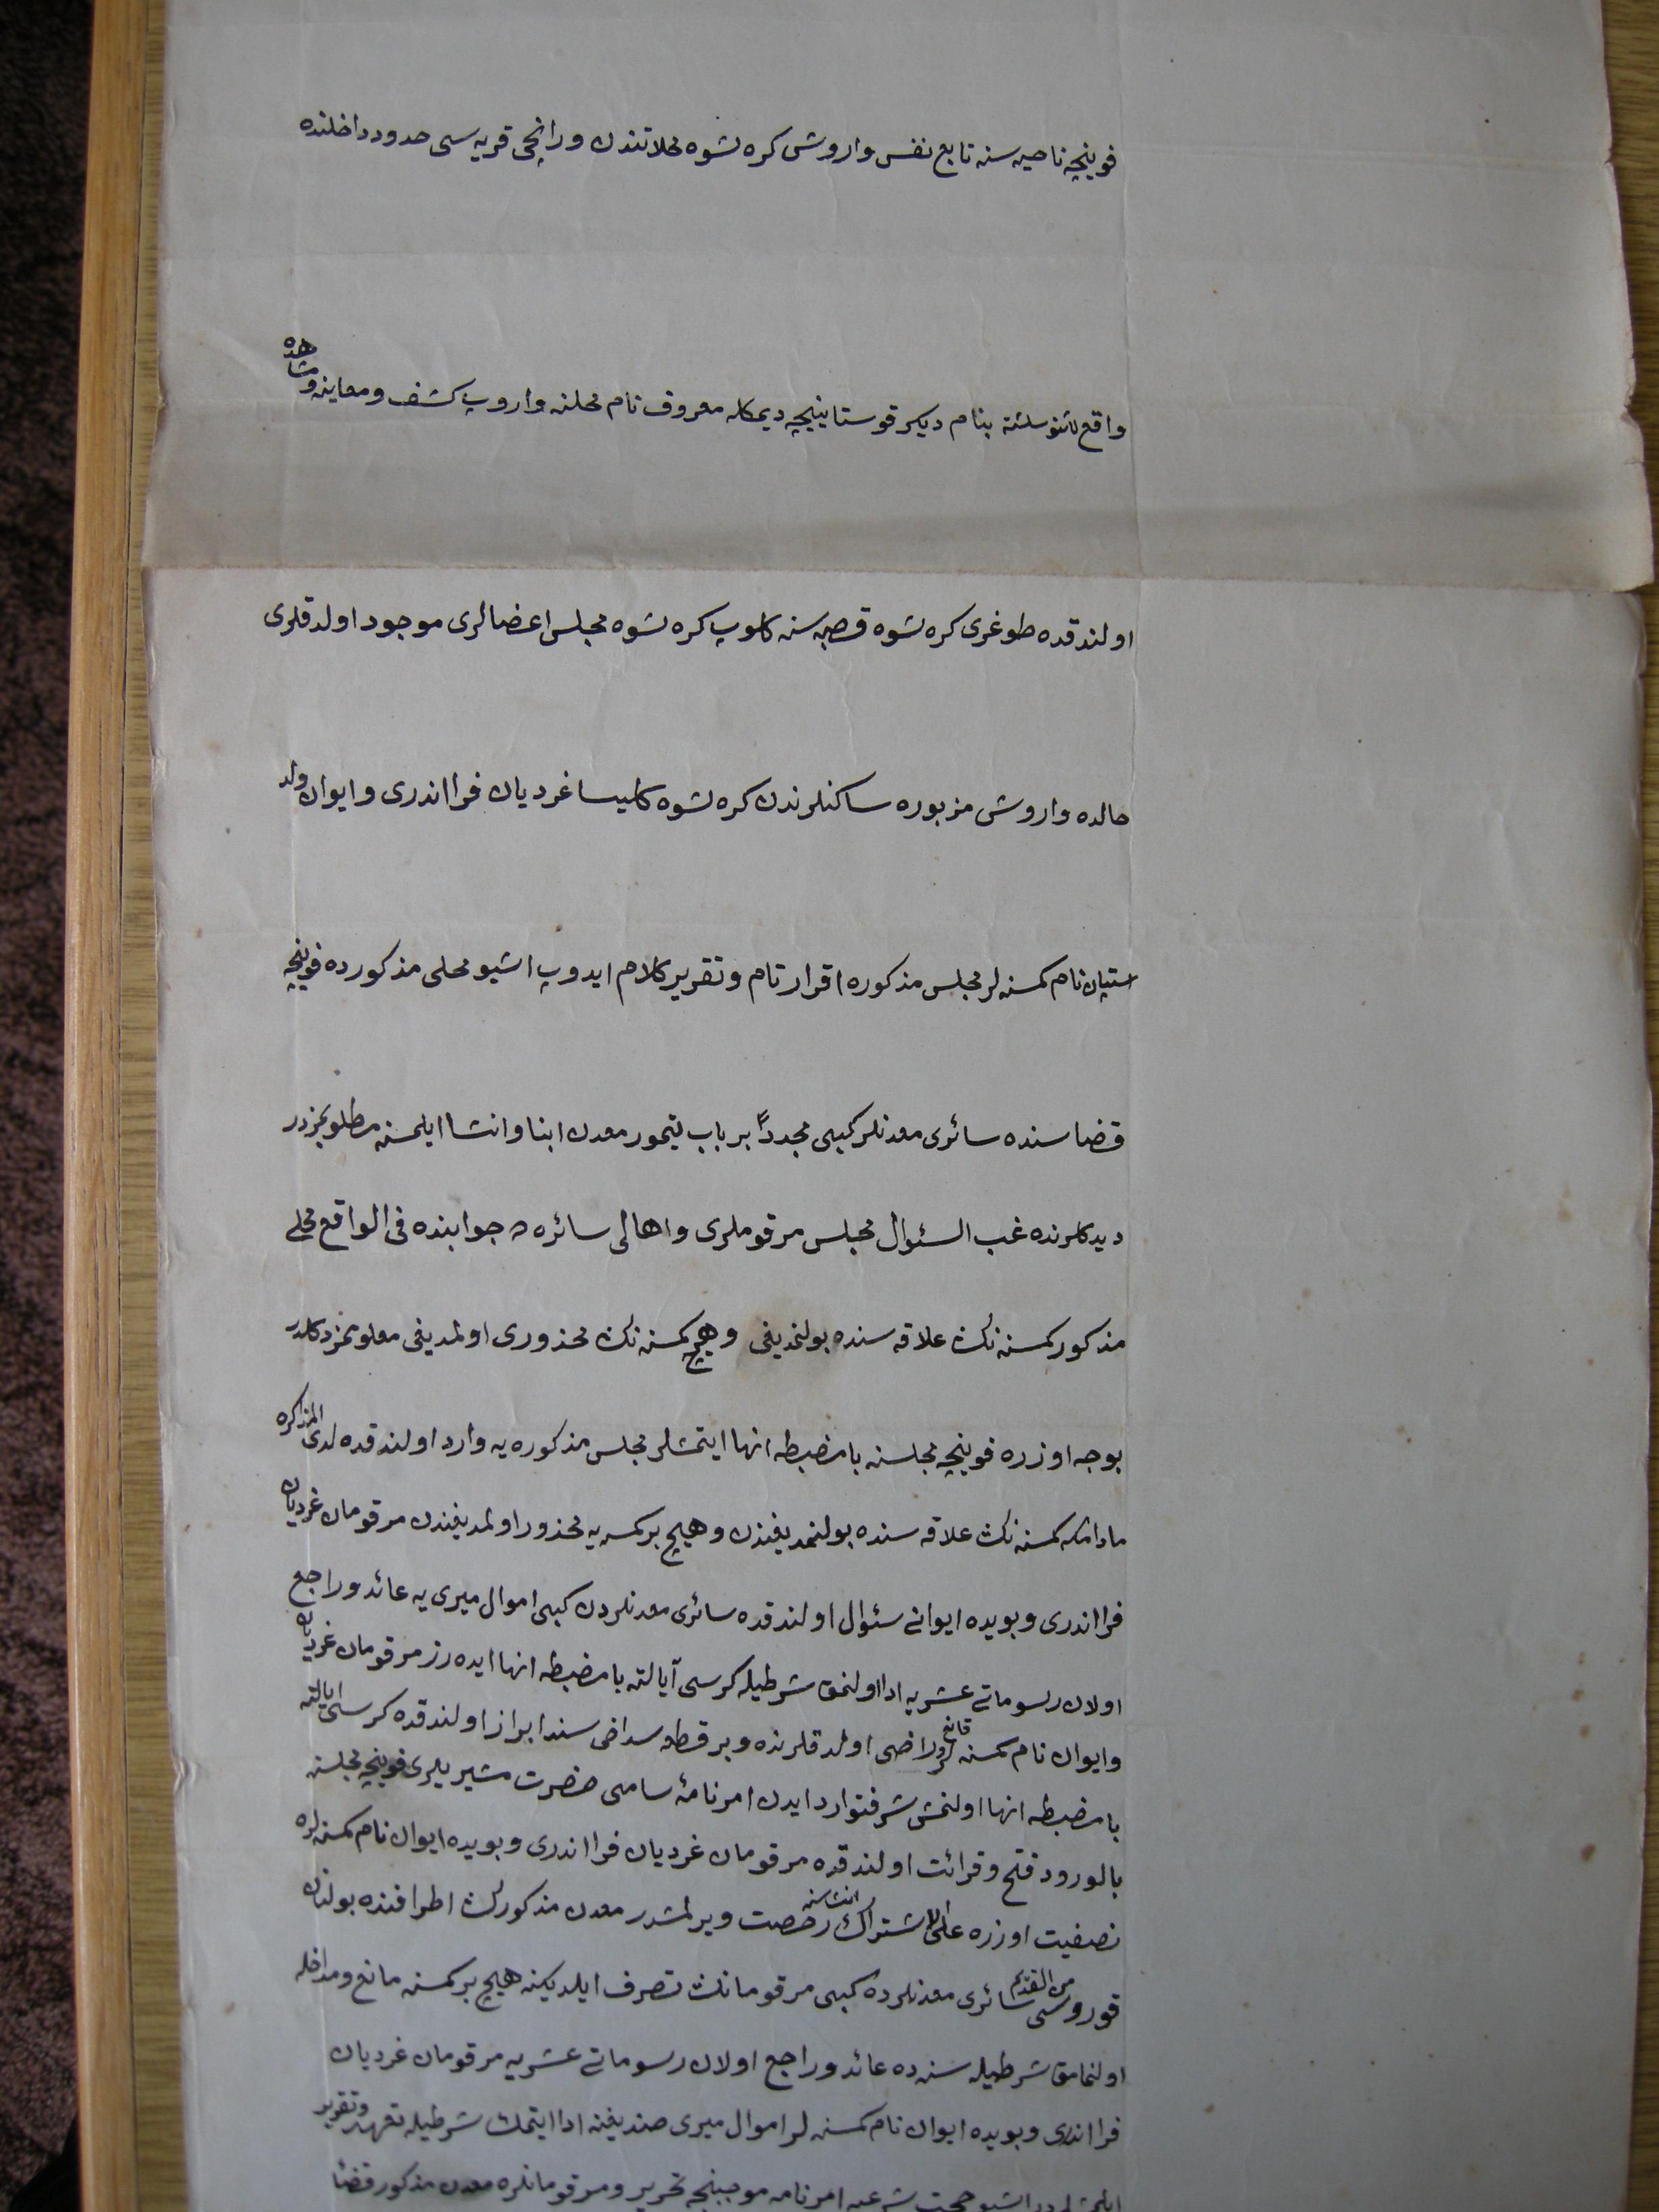 فوینچه ناحیه سنه تابع نفس واروش کره شوه محلاتندن ورانچی قریه سی حدود داخلنده
واقع بنام دیکر قوستاینیچه دیمکله معروف نام محلنه واروب کشف ومعاینه ومشاهده
اولندقده طوغری کره شوه قصبه سنه کلوب کره شوه مجلس اعضالری موجود اولدقلری
حالده واروش مزبوره ساکنلرندن کره شوه کلیسا غردیان فرا اندری وایوان ولد
استپان نام کمسنه لر مجلس مذکوره اقرار تام وتقریر کلام ایدوب اشبو محلی مذکورده فوینچه
قضاسنده سائری معدنلر کبی مجدداً بر باب تیمور معدن ابنا وانشا ایلمسنه مطلوبمزدر
دیدکلرنده غب السئوال مجلس مرقوملری واهالی سائره جوابنده فی الواقع محلی
مذکور کمسنه نک علاقه سنده بولنمدیغی وهیچ کمسنه نک محذوری اولمدیغی معلومزدکلدر
بوجه اوزره فوینچه مجلسنه بامضبطه انها ایتمشلر مجلس مذکوره یه وارد اولندقده لدی المذاکره
مادامکه کمسنه نک علاقه سنده بولنمدیغندن وهیچ بر کمسه یه محذور اولمدیغندن مرقومان غردیان
فرا اندری وبویده ایوانی سئوال اولندقده سائری معدنلردن کبی اموال میری یه عائد وراجع
اولان رسوماتی عشریه ادا اولنمق شرطیله کرسی آیالته بامضبطه انها ایده رز مرقومان غردیان
وایوان نام کمسنه لر قانع وراضی اولدقلرنده وبر قطعه سداضی سندا براز اولندقده کرسی ایالته
بامضبطه انها اولنمش شرفتوارد ایدن امرنامهٔ سامی حضرت مشیریلری فوینچه مجلسنه
بالورود فتح وقرائت اولندقده مرقومان غردیان فرا اندری وبویده ایوان نام کمسنه لره
نصفیت اوزره علی الاشتراک انشاسنه رخصت ویرلمشدر معدن مذکورک اطرافنده بولنان
قوروسی من القدیم سائری معدنلرده کبی مرقومانک تصرف ایلدیکنه هیچ بر کمسنه مانع ومداخله
اولنمامق شرطیله سنه ده عائد وراجع اولان رسوماتی عشریه مرقومان غردیان
فرا اندری وبویده ایوان نام کمسنه لر اموال میری صندیغنه ادا ایتمک شرطیله تعهد وتقریر
ایلمشلردر اشبو حجت شرعیه امرنامه موجبنجه تحریر ومرقومانلره معدن مذکور قضئا